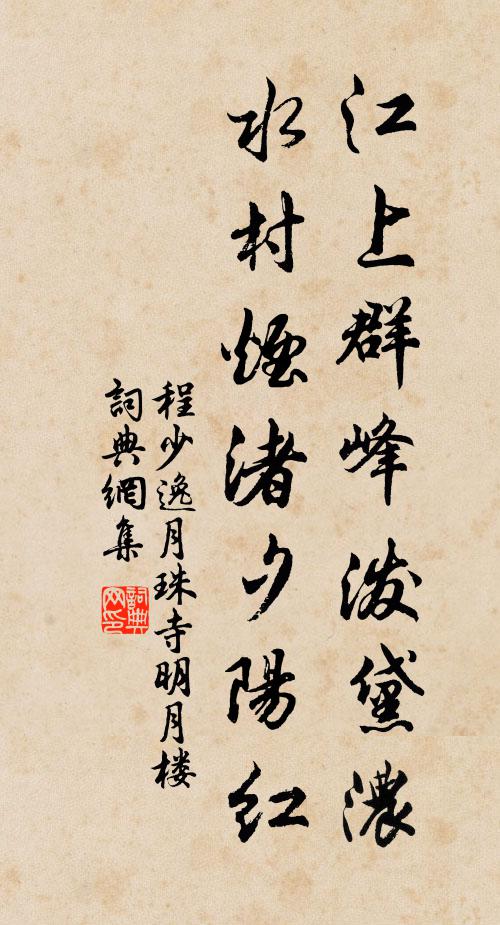 江上群峰泼黛濃
水村煙渚夕陽紅
程少逸月珠寺明月楼
詞典網集
詞典网印